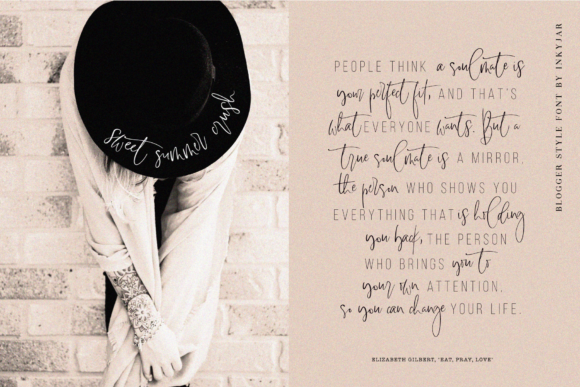 sweet summer crush
PEOPLE THINK a soulmate is
your perfect fit, AND THAT'S
what EVERYONE wants. But a
true soulmate is A MIRROR,
the person WHO SHOWS YOU
EVERYTHING THAT is holding
you back, THE PERSON
WHO BRINGS you to
your own ATTENTION,
so you can change YOUR LIFE.
ELIZABETH GILBERT, "EAT, PRAY, LOVE"
BLOGGER STYLE FONT BY INKYJAR